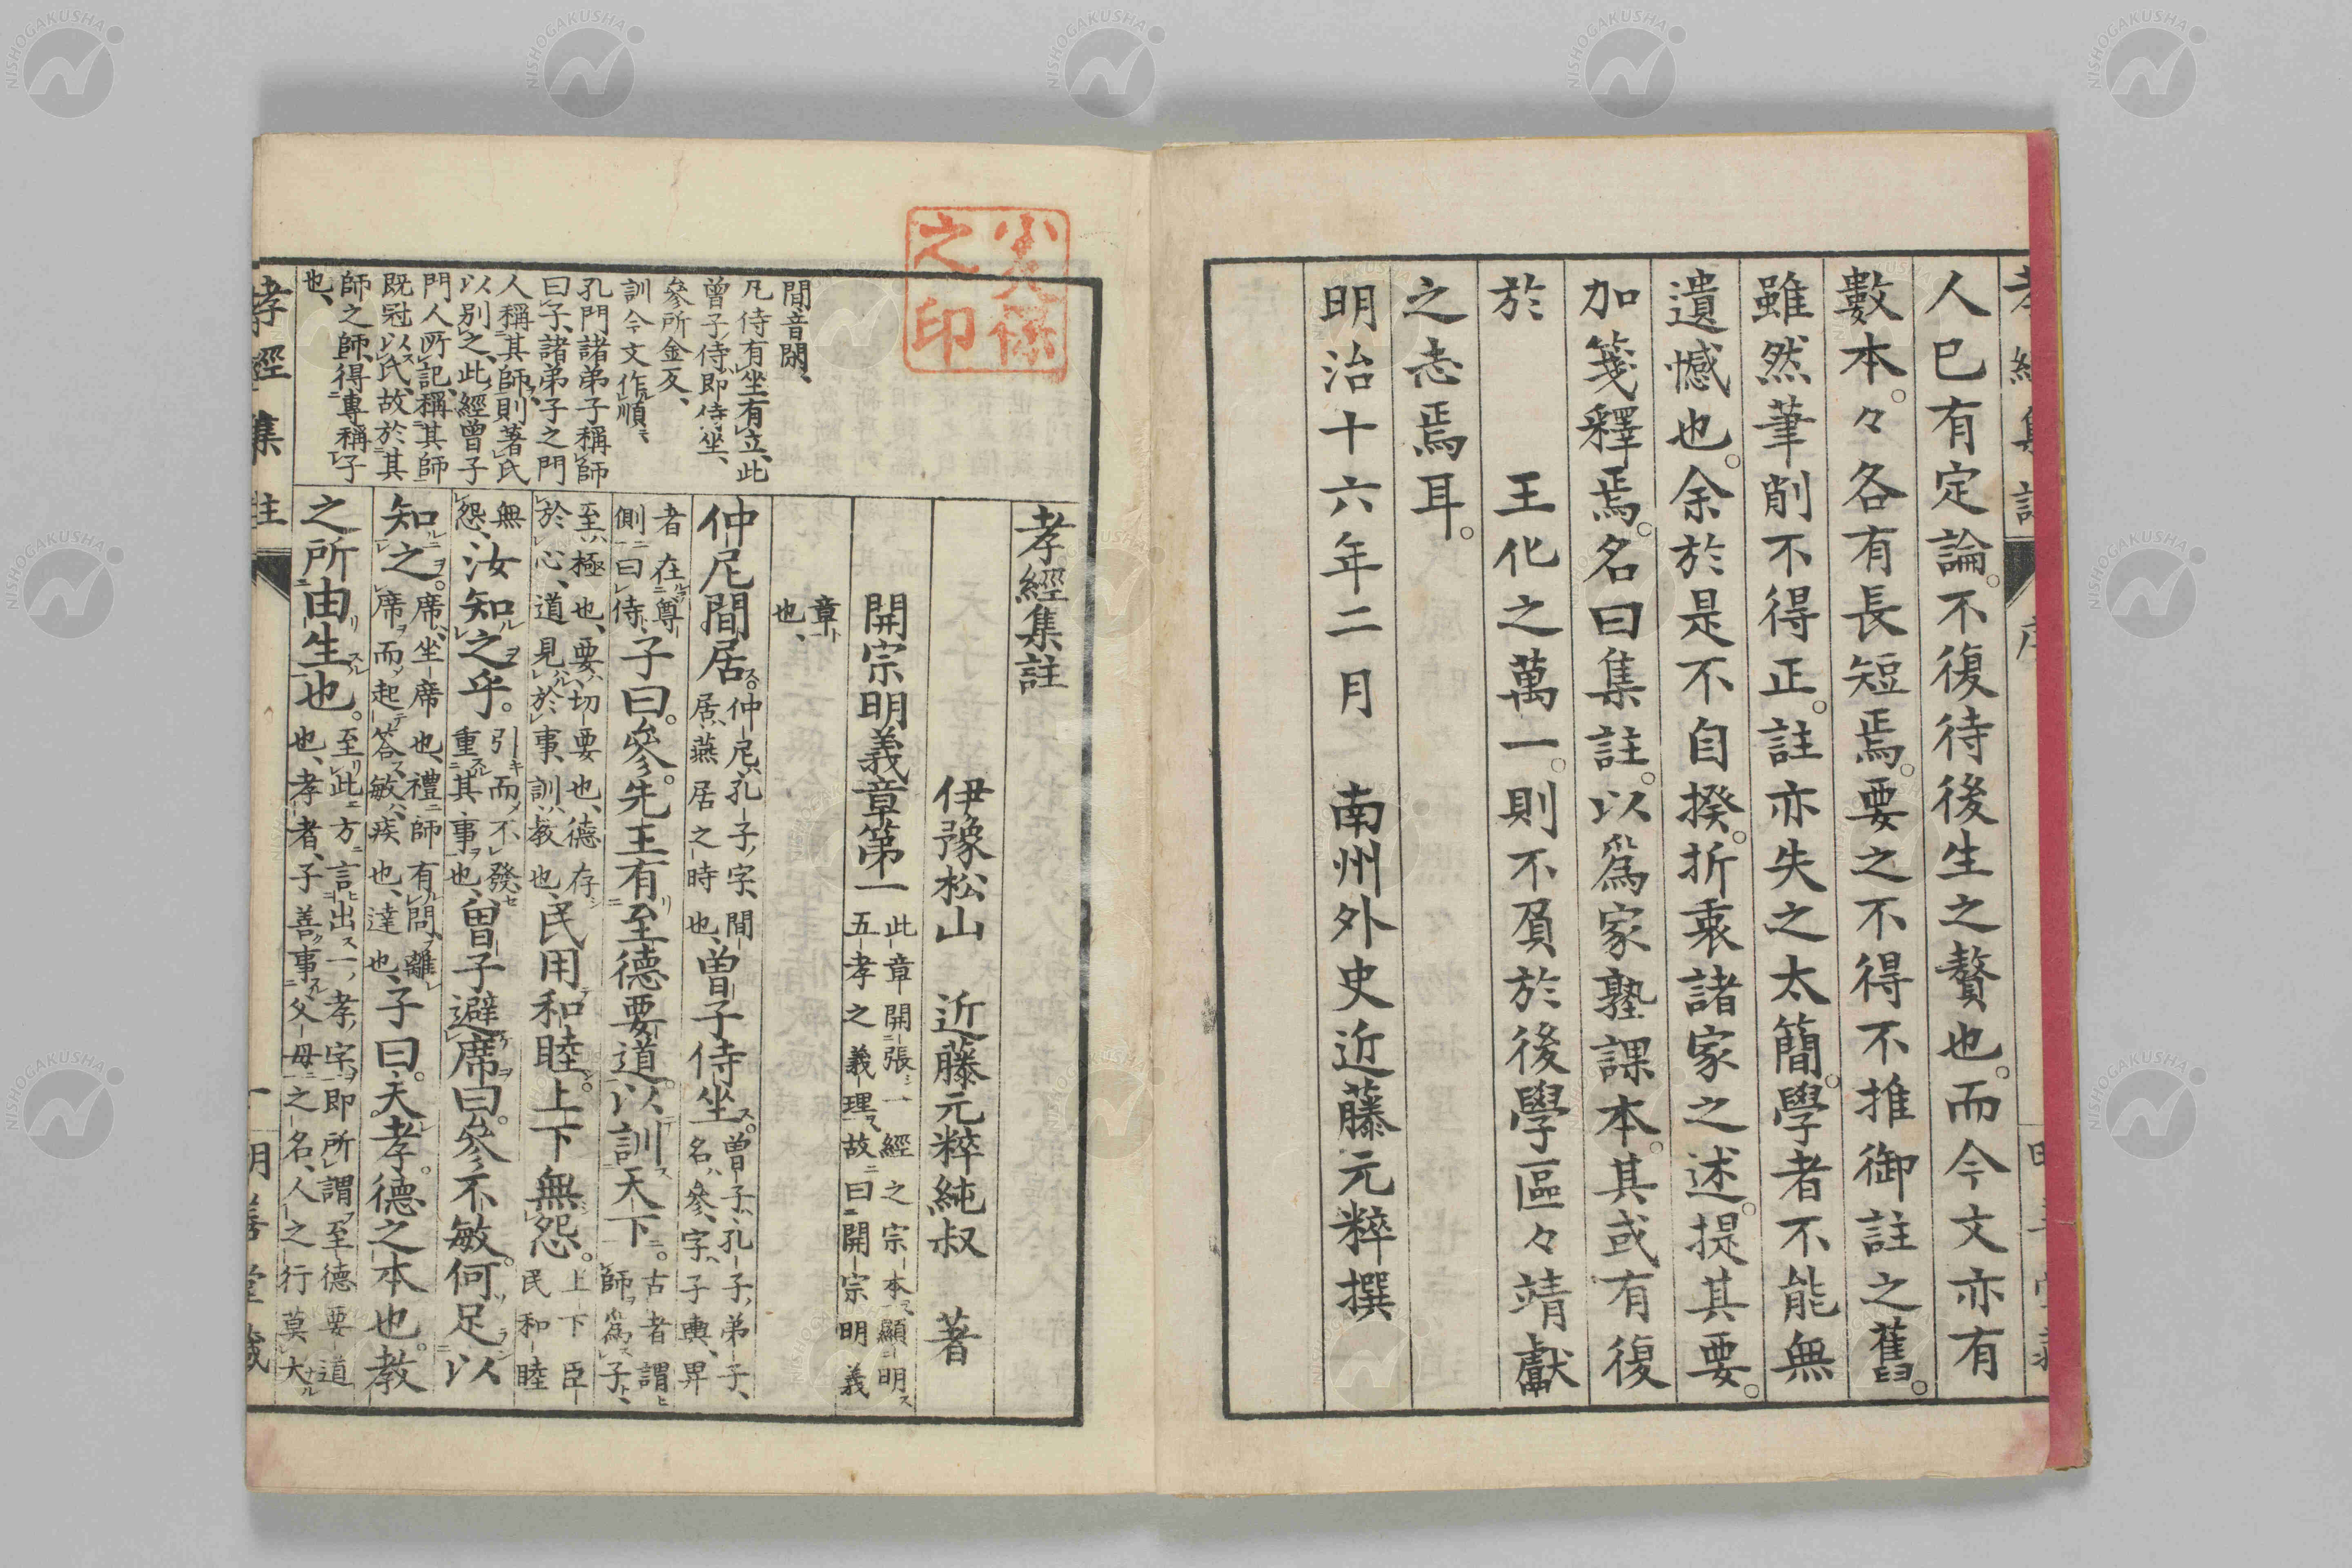 人已有定論。不復待後生之贅也。而今文亦有
數本。々各有長短焉。要之不得不推御註之舊。
雖然筆削不得正。註亦失之太簡。學者不能無
遺憾也。余於是不自揆。折衷諸家之述。提其要。
加箋釋焉。名曰集註。以爲家塾課本。其或有復
於
王化之萬一。則不負於後學區々靖獻
之志焉耳。
明治十六年二月 南州外史近藤元粹撰
之印
孝經集註
伊豫松山 近藤元粹純叔 著
開宗明義章第一 此章開張一經之宗本、顯明
五孝之義理、故曰開宗明義
章也、
仲尼間居。仲尼、孔子字、間
居、燕居之時也、曾子侍坐。曾子、孔子弟子、
名參、字子輿、卑
者在尊
側曰侍、子曰。參。先王有至德要道。以訓天下。古者謂
師爲子、
至、極也、要、切要也、德存
於心、道見於事、訓、敎也、民用和睦。上下無怨。上下臣
民和睦
無
怨、汝知之乎。引而不發、
重其事也、曾子避席曰。參不敏。何足以
知之。席、坐席也、禮師有問、離
席而起答、敏、疾也、達也、子曰。夫孝。德之本也。敎
之所由生也。至此方言出一孝字、即所謂至德要道
也、孝者、子善事父母之名、人之行莫大
間音閑、
凡侍有坐有立、此
曾子侍、即侍坐、
參所金反、
訓今文作順、
孔門諸弟子稱師
曰子、諸弟子之門
人稱其師、則著氏
以別之、此經曾子
門人所記、稱其師
既冠以氏、故於其
師之師、得專稱子
也、
孝經集註
一